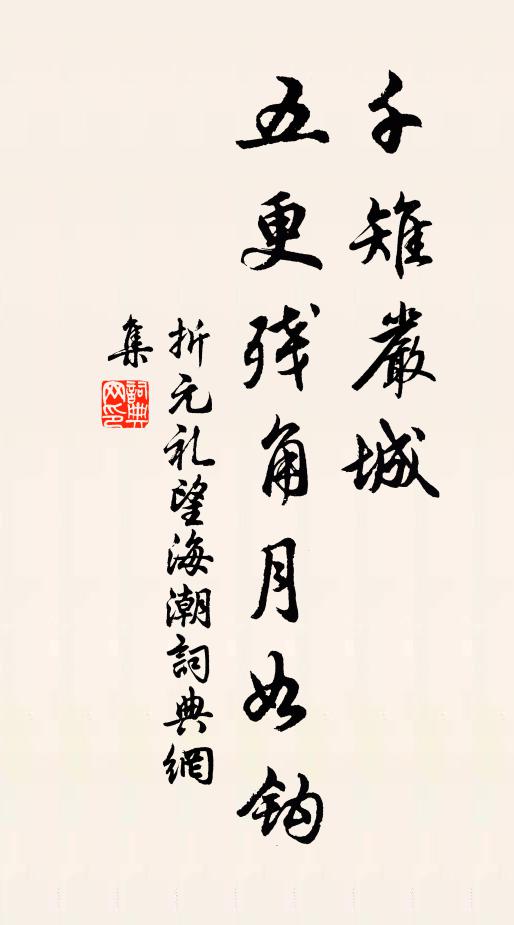 千雉嚴城
五更残角月如鈎
折元礼望海潮詞典網
集
詞典網印